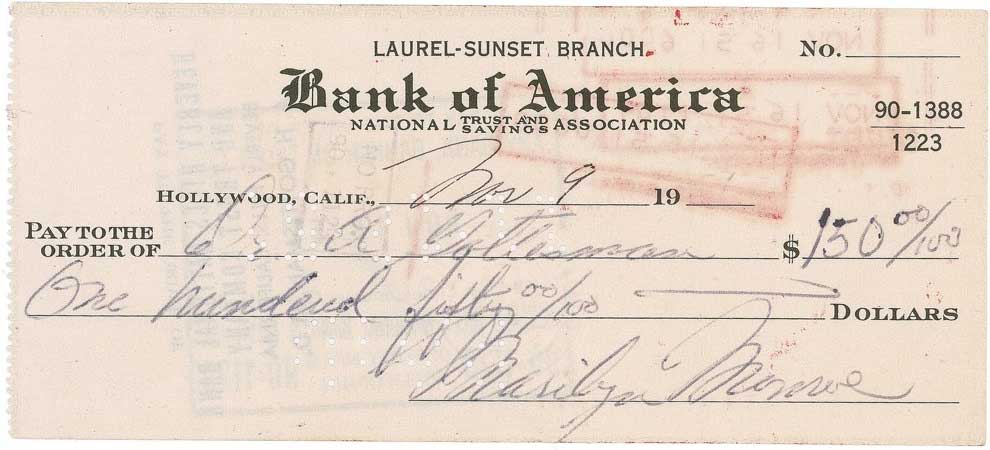 LAUREL-SUNSET BRANCH. No.
Bank of America
NATIONAL TRUST AND SAVINGS ASSOCIATION
90-1388
1223
HOLLYWOOD, CALIF., Nov 9 19
PAY TO THE ORDER OF Dr. A Gottesman $150 00/100
One hundred fifty 00/100 DOLLARS
Marilyn Monroe